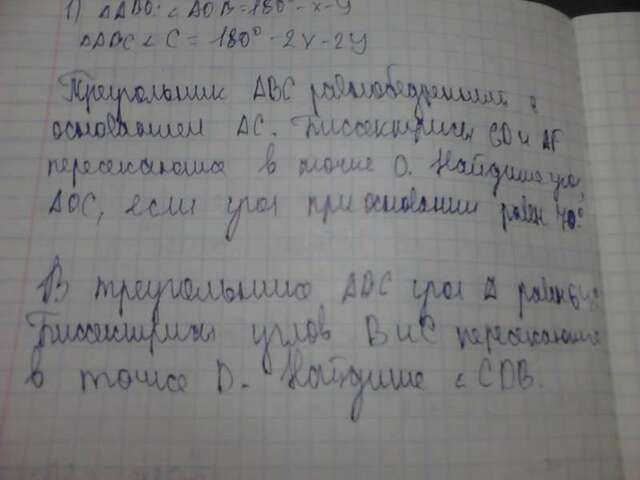 1) ΔABO: ∠AOB=180°-x-y
ΔABC ∠C = 180° - 2x - 2y
Треугольник ABC равнобедренный с
основанием AC. Биссектрисы CD и AF
пересекаются в точке O. Найдите угол
AOC, если угол при основании равен 40°.
В треугольнике ABC угол A равен
Биссектрисы углов B и C пересекаются
в точке D. Найдите ∠CDB.